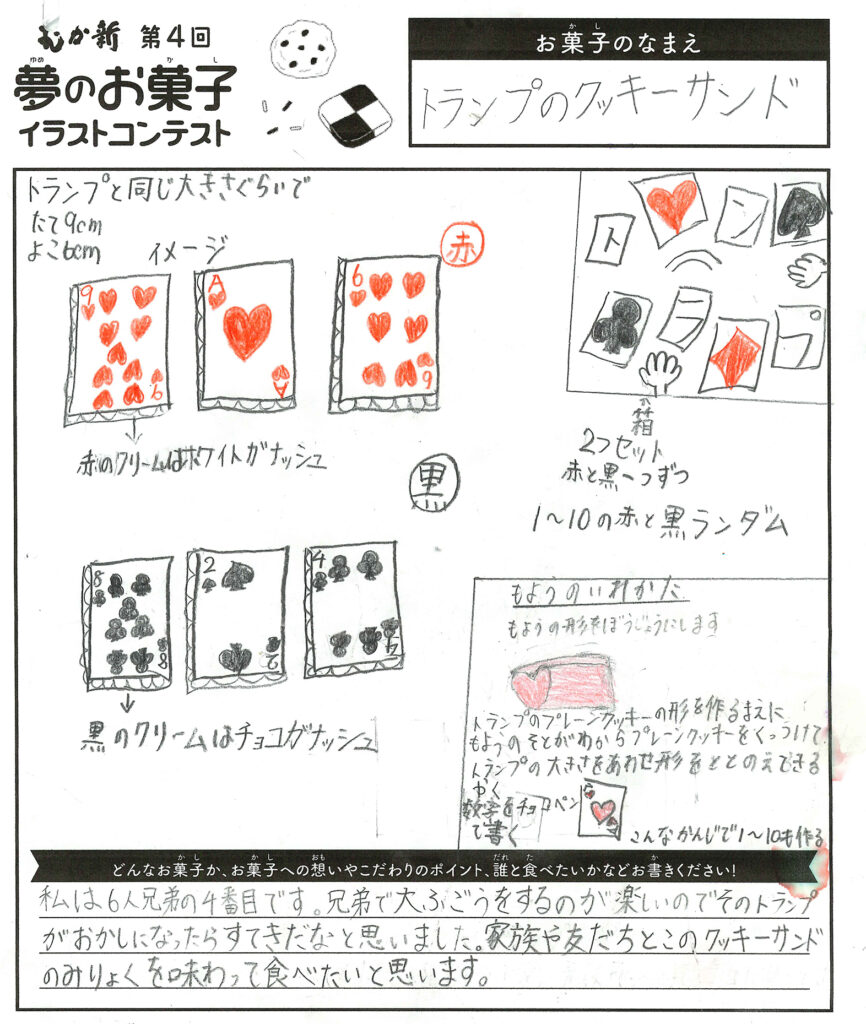 むか新 第4回
夢のお菓子
ゆめ かし
イラストコンテスト
お菓子のなまえ
かし
トランプのクッキーサンド
トランプと同じ大きさぐらいで
たて9cm
よこ6cm
イメージ
赤
9
9
A
A
6
6
赤のクリームはホワイトガナッシュ
ト
ラ
ン
プ
箱
2つセット
赤と黒一つずつ
1〜10の赤と黒ランダム
黒
8
8
2
2
4
4
黒のクリームはチョコガナッシュ
もようのいれかた
もようの形をぼうじょうにします
トランプのプレーンクッキーの形を作るまえに
もようのそとがわからプレーンクッキーをくっつけて
トランプの大きさをあわせ形をととのえできる
やく
数字をチョコペン
で書く
こんなかんじで1〜10も作る
どんなお菓子か、お菓子への想いやこだわりのポイント、誰と食べたいかなどお書きください!
かし かし おも だれ た か
私は6人兄弟の4番目です。兄弟で大ふごうをするのが楽しいのでそのトランプ
がおかしになったらすてきだなと思いました。家族や友だちとこのクッキーサンド
のみりょくを味わって食べたいと思います。